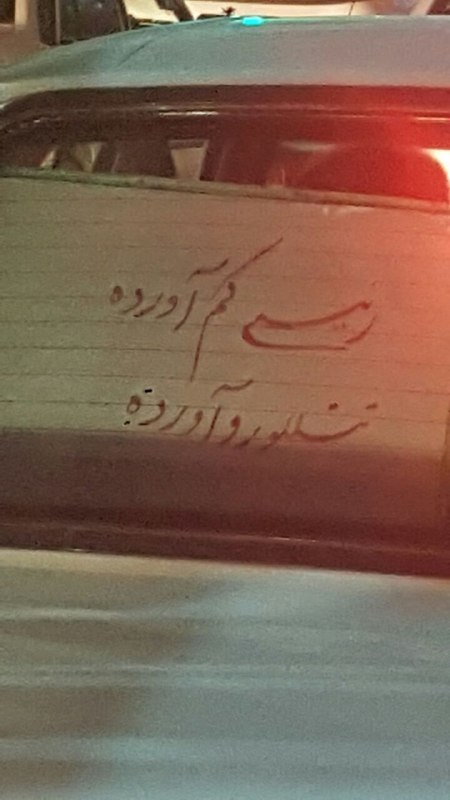 رئیسی کم آورده
تتلو رو آورده